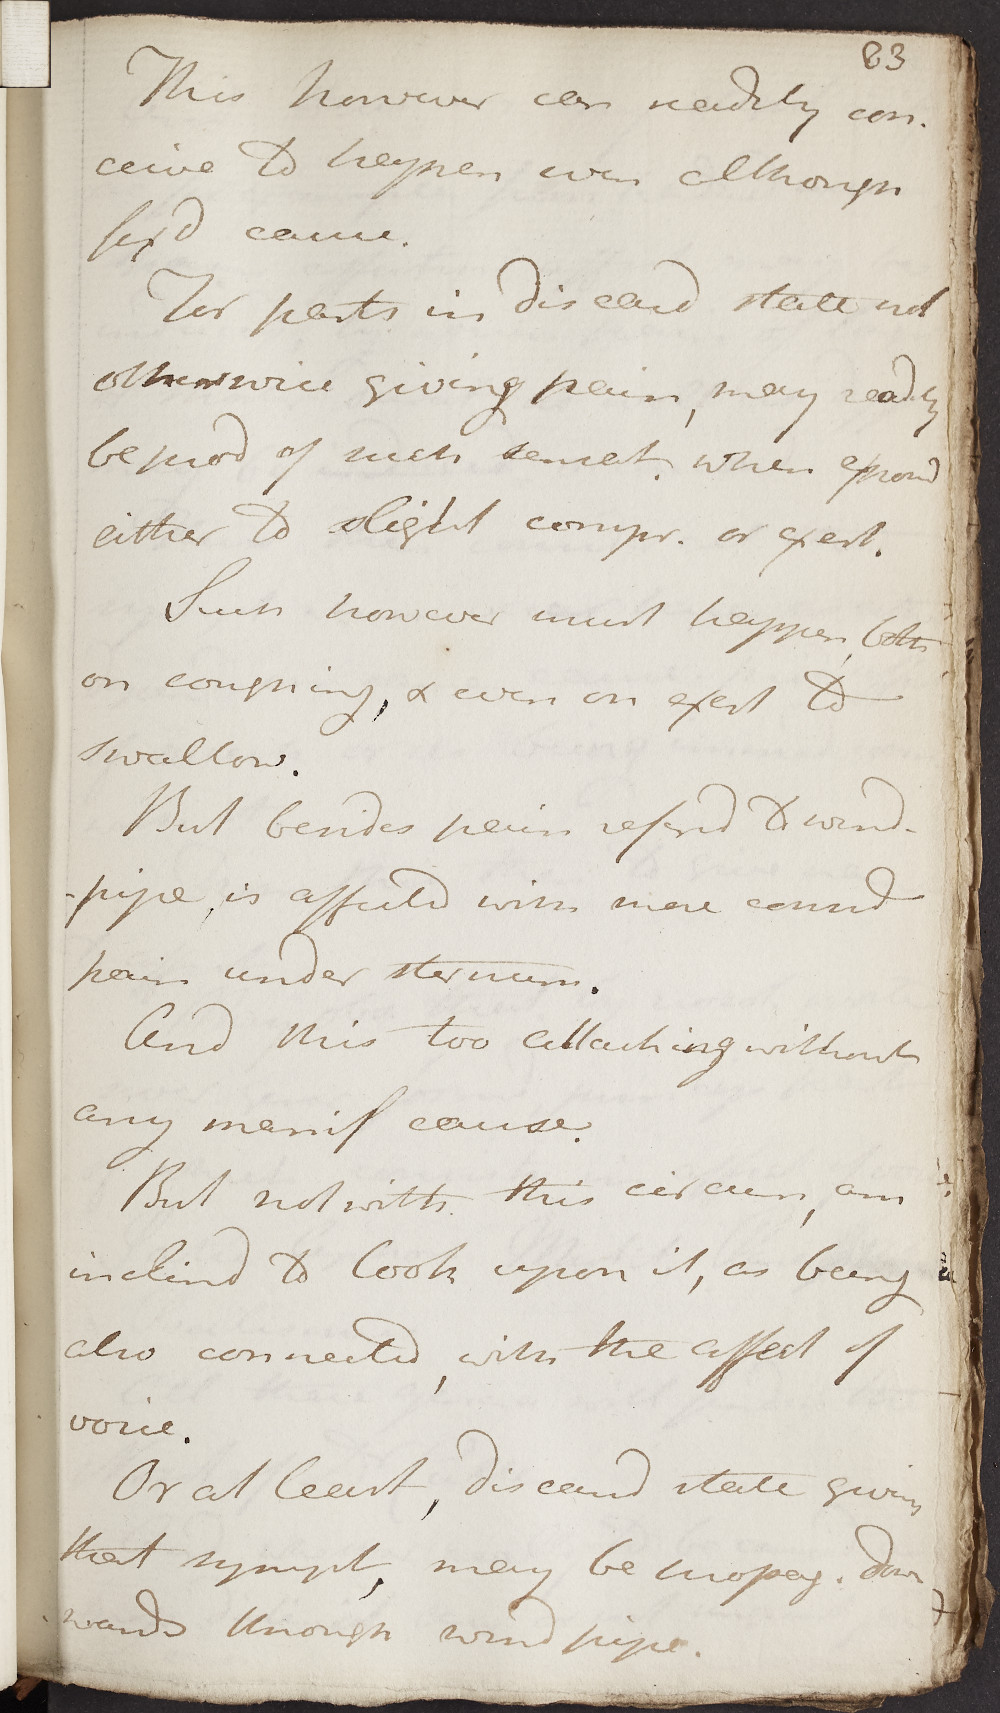 83
This however can readily con-
ceive to happen even although
fix'd cause.
For parts in diseas'd state not
otherwise giving pain, may readily
be prod of such sensat. when expos'd
either to slight compr. or exert.
Such however must happen, both
on coughing, & even on exert to
swallow.
But besides pain refer'd to wind-
-pipe, is affected with more const
pain under sternum.
And this too attacking without
any manif cause.
But notwith. this circum, am
inclin'd to look upon it, as being
also connected, with the affect of
voice.
Or at least, diseas'd state giving
that sympt, may be propag. down
wards through wind pipe.